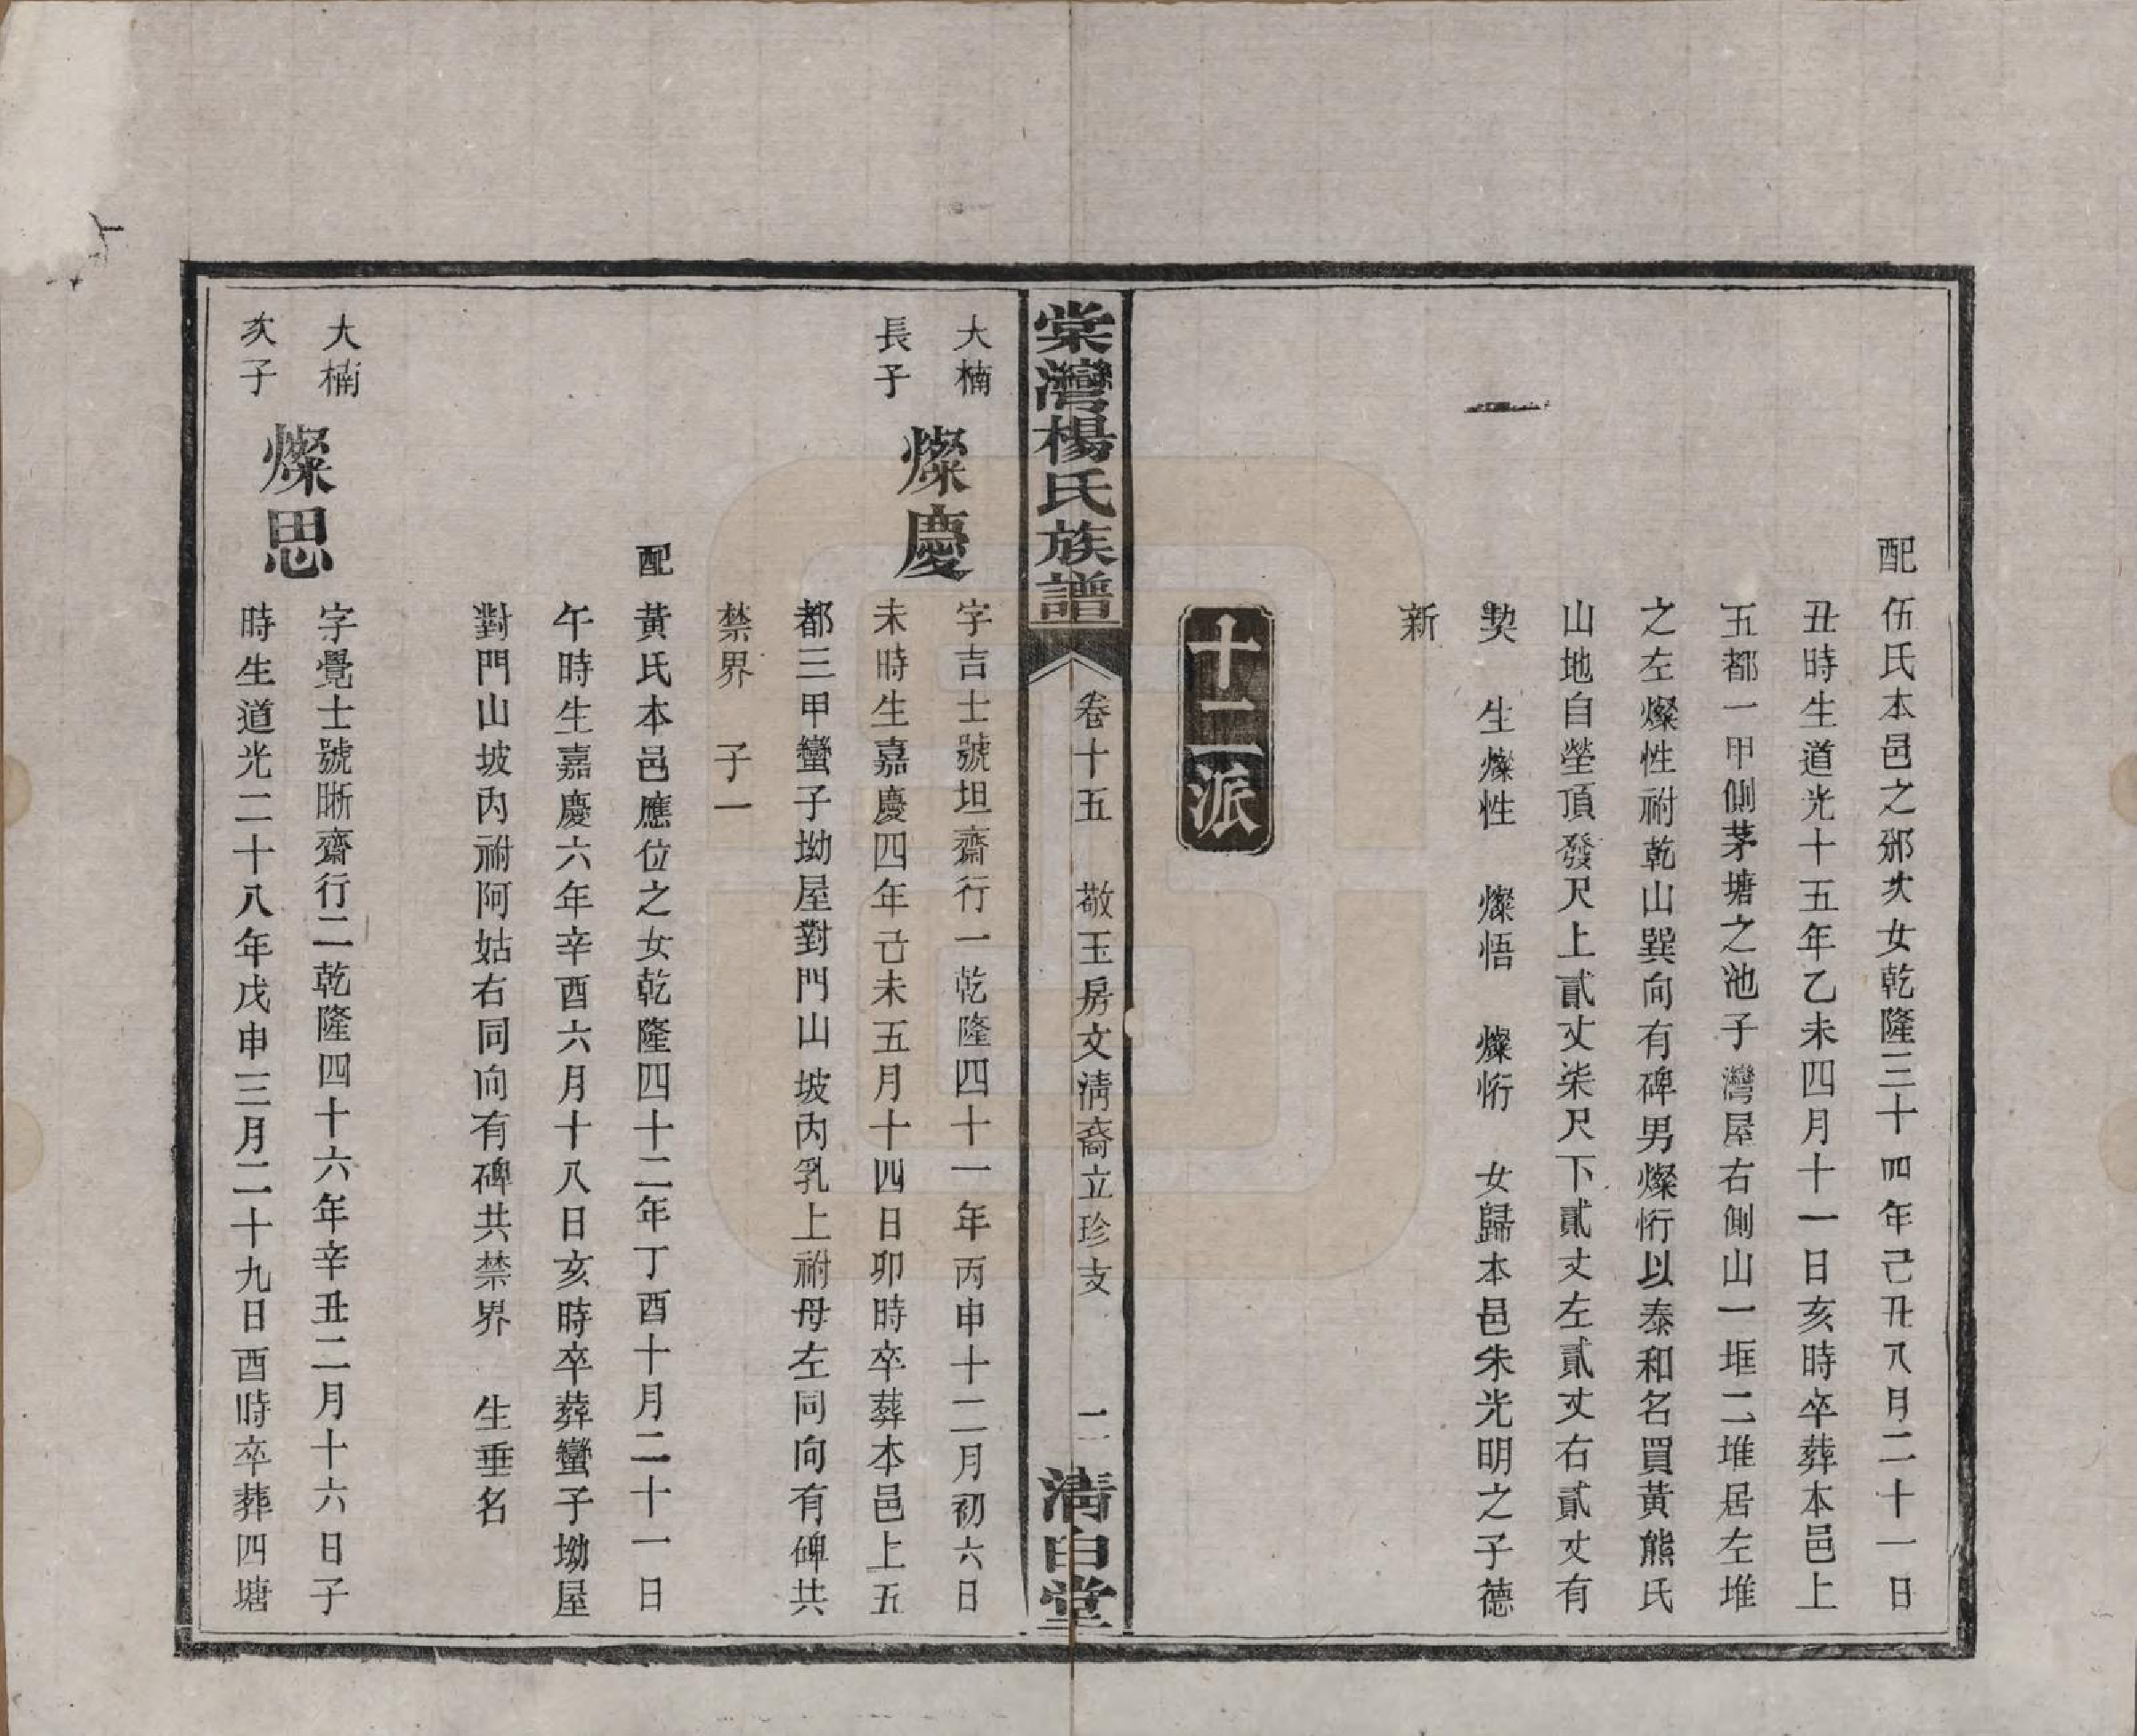 配伍氏本邑之邠次女乾隆三十四年己丑八月二十一日
丑時生道光十五年乙未四月十一日亥時卒葬本邑上
五都一甲側茅塘之池子灣屋右側山一框二堆居左堆
之左燦性祔乾山巽向有碑男燦恆以泰和名買黃熊氏
山地自塋頂發尺上貳丈柒尺下貳丈左貳丈右貳丈有
契 生燦性 燦悟 燦恆 女歸本邑朱光明之子德
新
十二派
棠灣楊氏族譜 卷十五 敬玉房文清裔立珍支 二 清白堂
大楠
長子
燦慶
字吉士號坦齋行一乾隆四十一年丙申十二月初六日
未時生嘉慶四年己未五月十四日卯時卒葬本邑上五
都三甲蠻子坳屋對門山坡內乳上祔母左同向有碑共
禁界 子一
配黃氏本邑應位之女乾隆四十二年丁酉十月二十一日
午時生嘉慶六年辛酉六月十八日亥時卒葬蠻子坳屋
對門山坡內祔阿姑右同向有碑共禁界 生垂名
大楠
次子
燦思
字覺士號晰齋行二乾隆四十六年辛丑二月十六日子
時生道光二十八年戊申三月二十九日酉時卒葬四塘